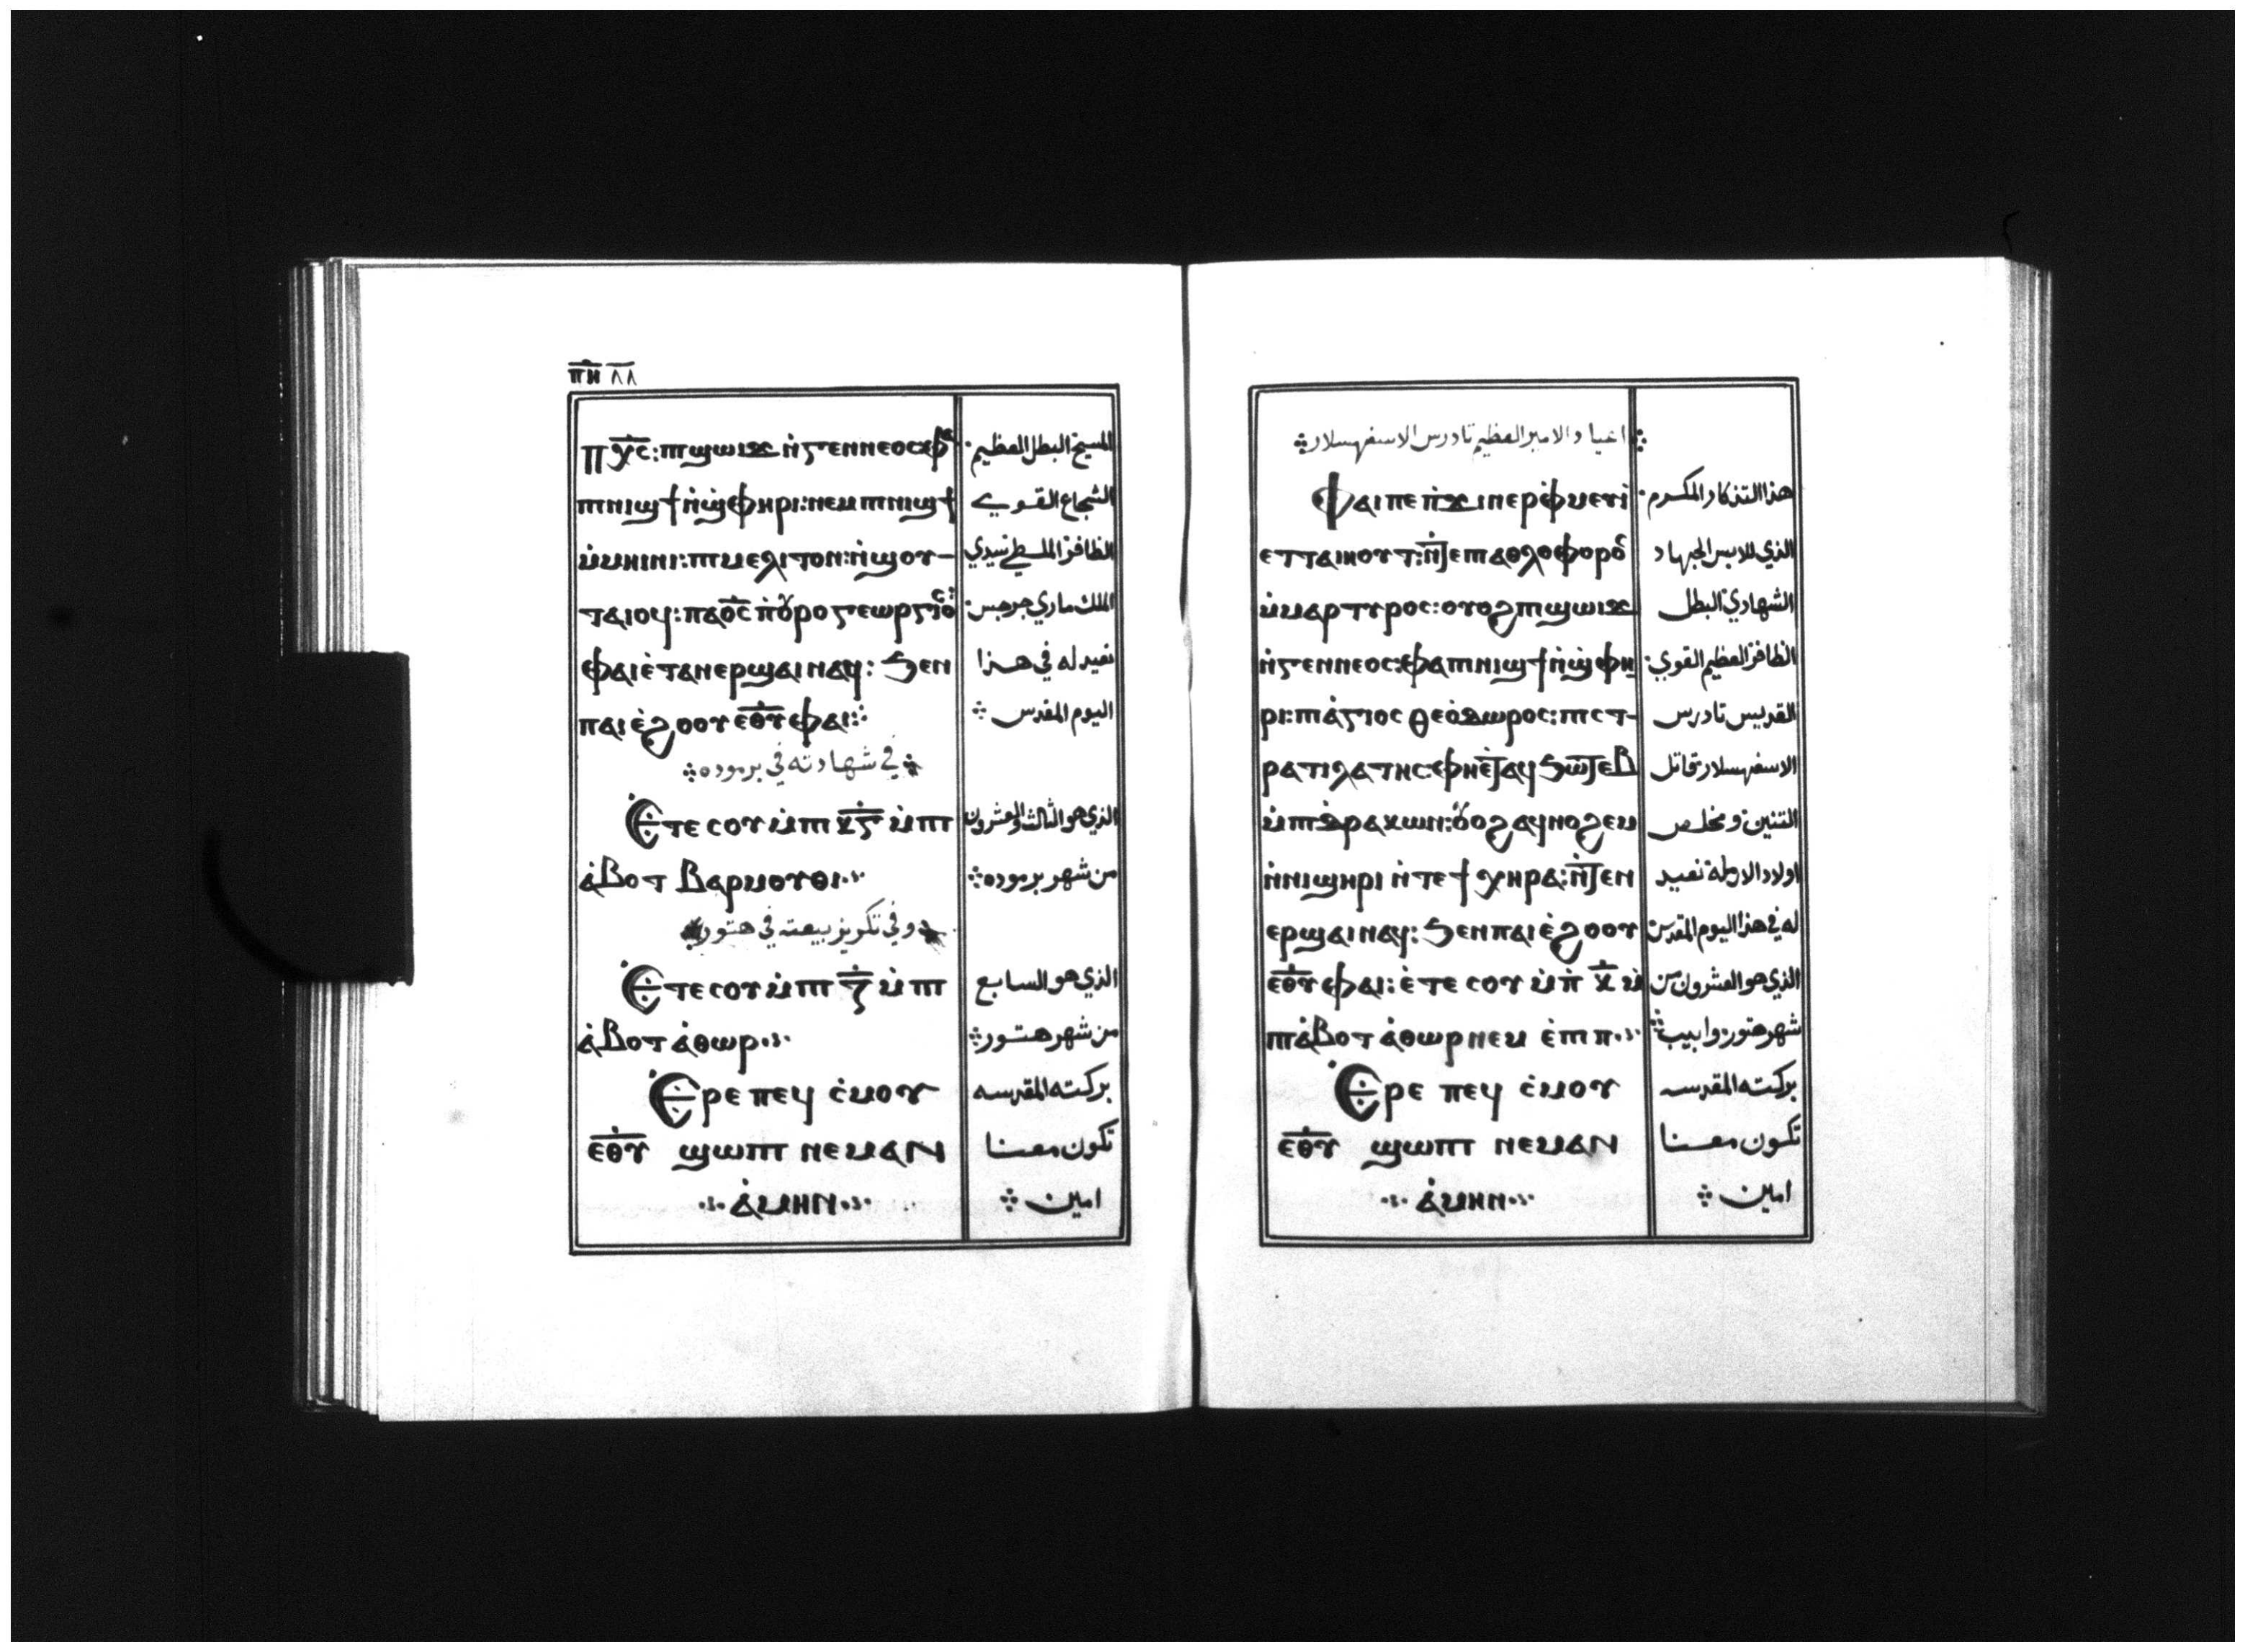 ⲡⲏ ٨٨
ⲡⲭ̅ⲥ̅: ⲡⲓϣⲱⲓϫ ⲛ̇ⲅⲉⲛⲛⲉⲟⲥ: ⲫⲁ المسيح البطل العظيم
ⲡⲓⲛⲓϣϯ ⲛ̇ϣ̇ⲫⲏⲣⲓ: ⲛⲉⲙ ⲡⲓⲛⲓϣϯ الشجاع القوي
ⲙ̇ⲙⲏⲓⲛⲓ: ⲡⲓⲙⲉⲗⲓⲧⲟⲛ: ⲛ̇ϣⲟⲩ- الظافر الملطي سيدي
ⲧⲁⲓⲟϥ: ⲡⲁⲟ̅ⲥ̅ ⲡ̇ⲟⲩⲣⲟ ⲅⲉⲱⲣⲅⲓⲟⲥ: الملك ماري جرجس
ⲫⲁⲓ ⲉ̇ⲧⲁⲛⲉⲣϣⲁⲓ ⲛⲁϥ: ϧⲉⲛ نعيد له في هذا
ⲡⲁⲓ ⲉ̇ϩⲟⲟⲩ ⲉ̅ⲑ̅ⲩ̅ ⲫⲁⲓ: اليوم المقدس
في شهادته في برموده
Ⲉ̇ⲧⲉ ⲥⲟⲩ ⲙ̇ⲡⲓ ⲕ̅ⲅ̅ ⲙ̇ⲡⲓ الذي هو الثالث والعشرون
ⲁ̇ⲃⲟⲧ ⲃⲁⲣⲙⲟⲩⲑⲓ من شهر برموده
وفي تكريز بيعته في هتور
Ⲉ̇ⲧⲉ ⲥⲟⲩ ⲙ̇ⲡⲓ ⲍ̅ ⲙ̇ⲡⲓ الذي هو السابع
ⲁ̇ⲃⲟⲧ ⲁ̇ⲑⲱⲣ من شهر هتور
Ⲉ̇ⲣⲉ ⲡⲉϥ ⲥ̇ⲙⲟⲩ بركته المقدسه
ⲉ̅ⲑ̅ⲩ̅ ϣⲱⲡⲓ ⲛⲉⲙⲁⲛ تكون معنا
ⲁ̇ⲙⲏⲛ امين
اعياد الامير العظيم تادرس الاسفهسلار
Ⲫⲁⲓ ⲡⲉ ⲡ̇ϫⲓⲛⲉⲣⲫⲙⲉⲩⲓ̀ هذا التذكار المكرم
ⲉⲧⲧⲁⲓⲏⲟⲩⲧ: ⲛ̇ⲧⲉ ⲡⲓⲁⲑⲗⲟⲫⲟⲣⲟⲥ الذي للابس الجهاد
ⲙ̇ⲙⲁⲣⲧⲩⲣⲟⲥ: ⲟⲩⲟϩ ⲡⲓϣⲱⲓϫ الشهادي البطل
ⲛ̇ⲅⲉⲛⲛⲉⲟⲥ: ⲫⲁ ⲡⲓⲛⲓϣϯ ⲛ̇ϣ̇ⲫⲏ الظافر العظيم القوي
ⲣⲓ: ⲡⲓⲁ̇ⲅⲓⲟⲥ ⲑⲉⲟ̇ⲇⲱⲣⲟⲥ: ⲡⲓⲥⲧ- القديس تادرس
ⲣⲁⲧⲓⲗⲁⲧⲏⲥ: ⲫⲏⲉ̇ⲧⲁϥ ϧⲱⲧⲉⲃ الاسفهسلار قاتل
ⲙ̇ⲡⲓⲇⲣⲁⲕⲱⲛ: ⲟⲩⲟϩ ⲁϥⲛⲟϩⲉⲙ التنين ومخلص
ⲛ̇ⲛⲓϣⲏⲣⲓ ⲛ̇ⲧⲉ ϯⲭⲏⲣⲁ: ⲛ̇ⲧⲉⲛ اولاد الارمله نعيد
ⲉⲣϣⲁⲓ ⲛⲁϥ: ϧⲉⲛ ⲡⲁⲓ ⲉ̇ϩⲟⲟⲩ له في هذا اليوم المقدس
ⲉ̅ⲑ̅ⲩ̅ ⲫⲁⲓ: ⲉ̇ⲧⲉ ⲥⲟⲩ ⲙ̇ⲡⲓ ⲕ̅ ⲙ̇ الذي هو العشرون من
ⲡⲓⲁ̇ⲃⲟⲧ ⲁ̇ⲑⲱⲣ ⲛⲉⲙ ⲉ̇ⲡⲓⲡ شهر هتور وابيب
Ⲉ̇ⲣⲉ ⲡⲉϥ ⲥ̇ⲙⲟⲩ بركته المقدسه
ⲉ̅ⲑ̅ⲩ̅ ϣⲱⲡⲓ ⲛⲉⲙⲁⲛ تكون معنا
ⲁ̇ⲙⲏⲛ امين